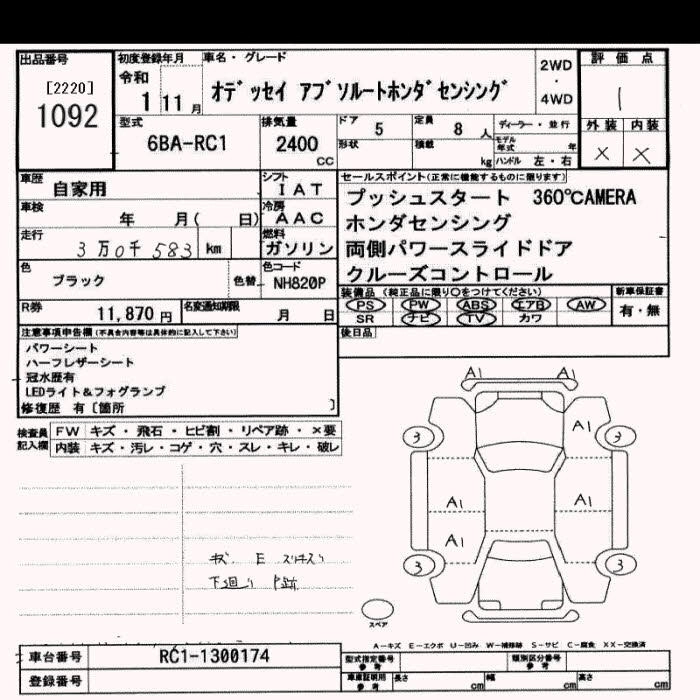 出品番号
[2220]
1092
初度登録年月
令和
1 11 月
車名・グレード
オデッセイ アブソルートホンダセンシング
2WD
・
4WD
評 価 点
1
外 装 内 装
× ×
型式
6BA-RC1
排気量
2400
CC
ドア
5
定員
8 人
形状
積載
kg
ディーラー・並行
モデル年式 年
ハンドル 左・右
車歴
自家用
シフト
IAT
車検
年 月( 日)
冷房
AAC
走行
3万0千583 km
燃料
ガソリン
色
ブラック
色替
色コード
NH820P
R券
11,870 円
名変通知期限
月 日
セールスポイント(正常に機能するものに限ります)
プッシュスタート 360℃AMERA
ホンダセンシング
両側パワースライドドア
クルーズコントロール
装備品 (純正品に限り○をつけてください)
PS PW ABS エアB AW
SR ナビ TV カワ
新車保証書
有・無
後日品
注意事項申告欄(不具合内容等は具体的に記入して下さい)
パワーシート
ハーフレザーシート
冠水歴有
LEDライト&フォグランプ
修復歴 有〔箇所 〕
検査員記入欄
FW キズ・飛石・ヒビ割・リペア跡・×要
内装 キズ・汚レ・コゲ・穴・スレ・キレ・破レ
キズ E スリキズ
下廻り P跡
A1 A1
A1
3 3
A1 A1
A1
3 3
スペア
A-キズ E-エクボ U-凹み W-補修跡 S-サビ C-腐食 XX-交換済
車台番号
RC1-1300174
登録番号
型式指定番号 参考
類別区分番号 参考
車庫証明用 参考
長さ cm 幅 cm 高さ cm